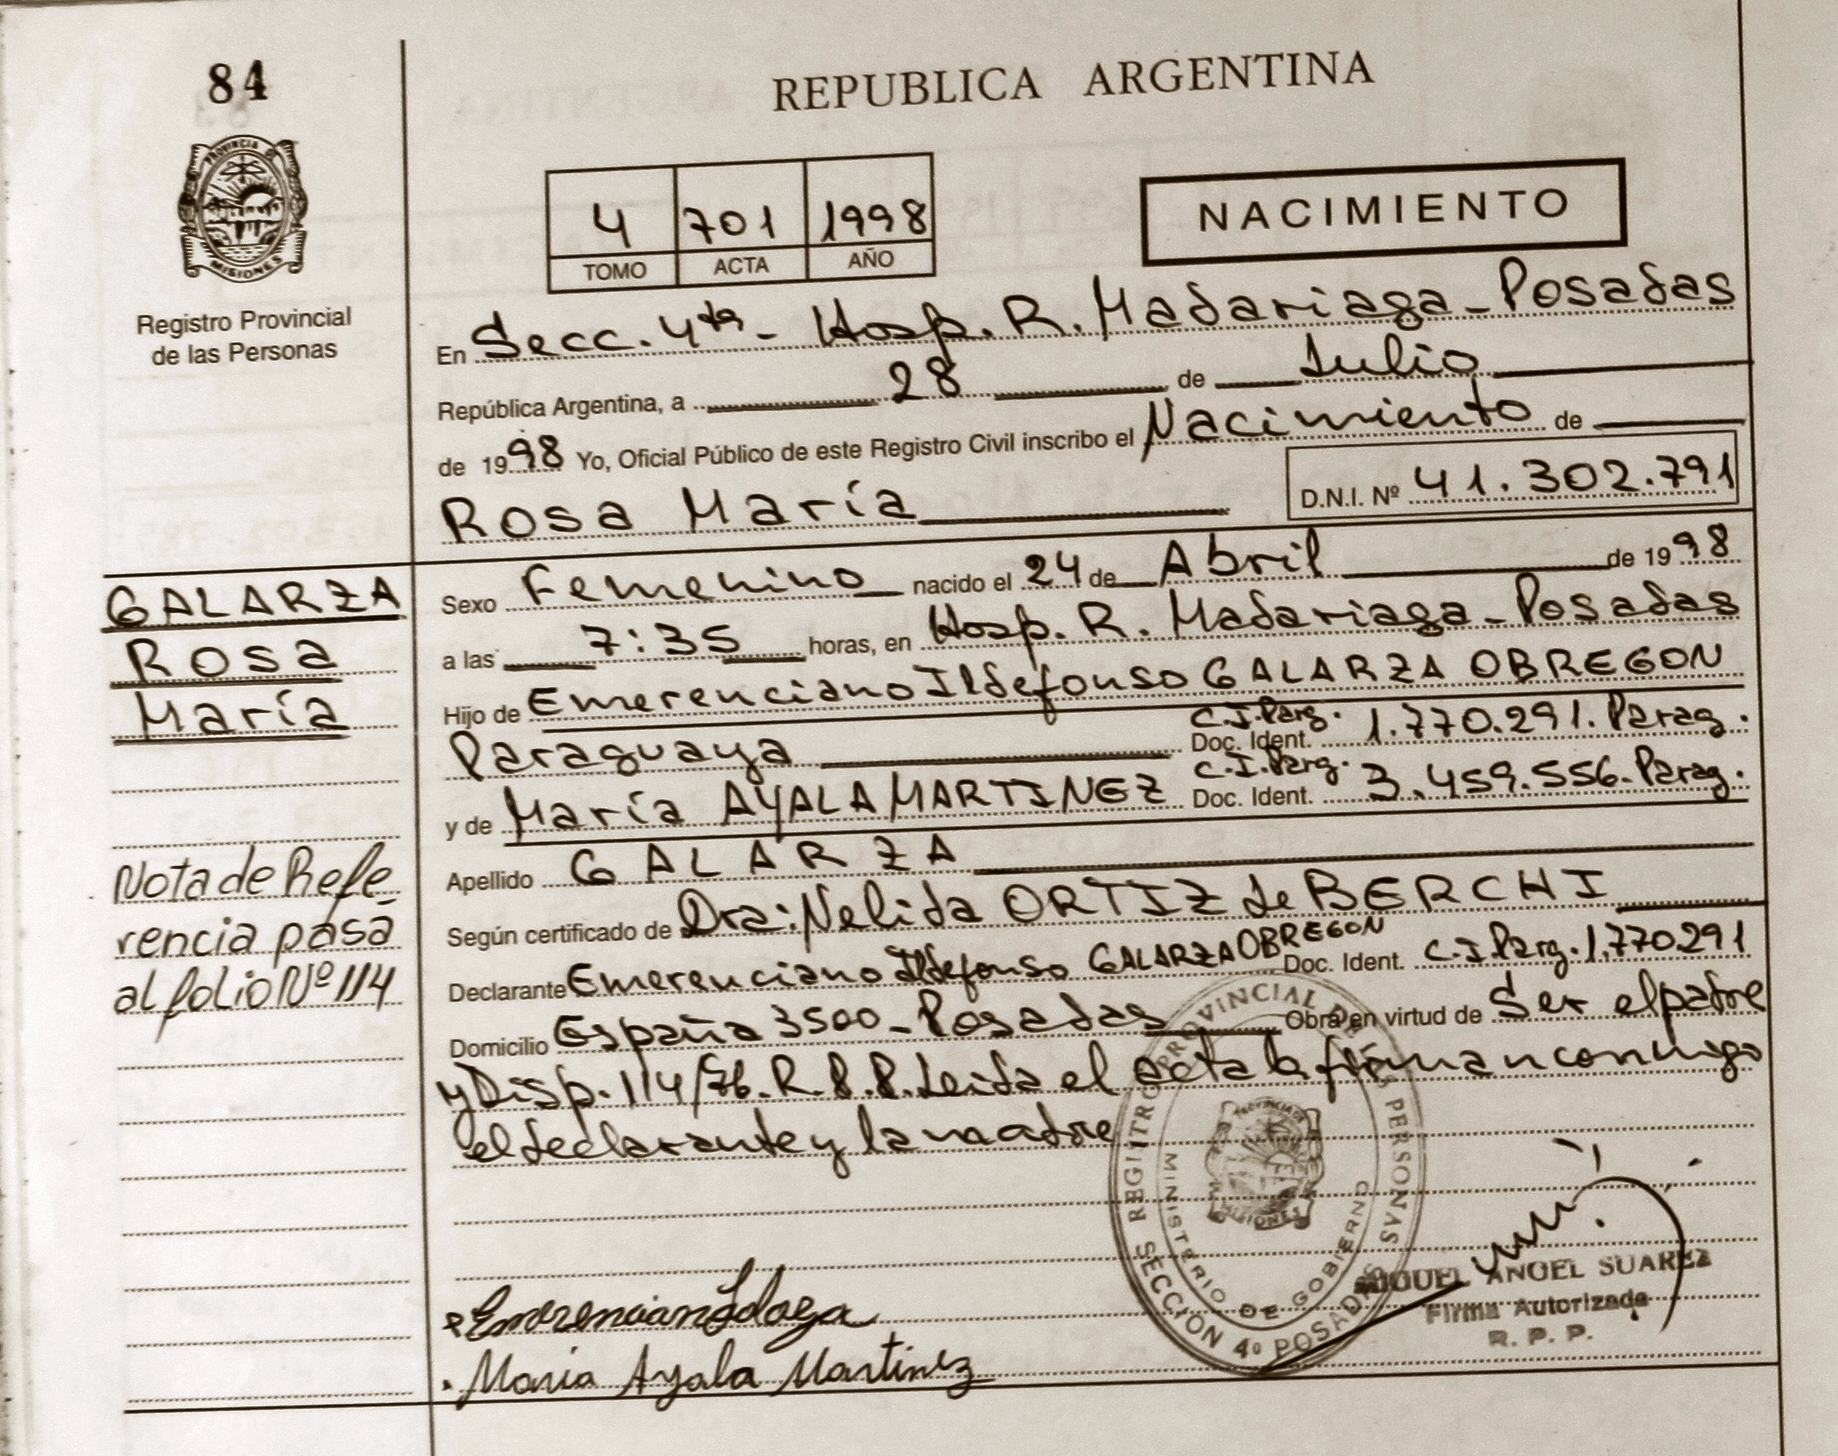 84
REPUBLICA ARGENTINA
PROVINCIA DE
MISIONES
Registro Provincial
de las Personas
4 701 1998
TOMO ACTA AÑO
NACIMIENTO
En Secc. 4ta - Hosp. R. Madariaga - Posadas
República Argentina, a 28 de Julio
de 1998 Yo, Oficial Público de este Registro Civil inscribo el Nacimiento de
Rosa María D.N.I. Nº 41.302.791
GALARZA
Rosa
María
Sexo Femenino nacido el 24 de Abril de 1998
a las 7:35 horas, en Hosp. R. Madariaga - Posadas
Hijo de Emerenciano Ildefonso GALARZA OBREGON
C.I. Parg.
Paraguaya Doc. Ident. 1.770.291. Parag.
C.I. Parg.
y de María AYALA MARTINEZ Doc. Ident. 3.459.556 - Parag.
Apellido GALARZA
Según certificado de Dra: Nelida ORTIZ de BERCHI
Declarante Emerenciano Ildefonso GALARZA OBREGON Doc. Ident. C.I. Parg. 1.770.291
Domicilio España 3500 - Posadas Obra en virtud de Ser el padre
y Disp. 114/76. R.P.P. Leida el acta la firman conmigo
el declarante y la madre
Nota de Refe
rencia pasa
al folio Nº 114
REGISTRO PROVINCIAL DE LAS PERSONAS
MINISTERIO DE GOBIERNO
SECCIÓN 4º POSADAS
PROVINCIA DE
MISIONES
MIGUEL ANGEL SUAREZ
Firma Autorizada
R. P. P.
Maria Ayala Martinez